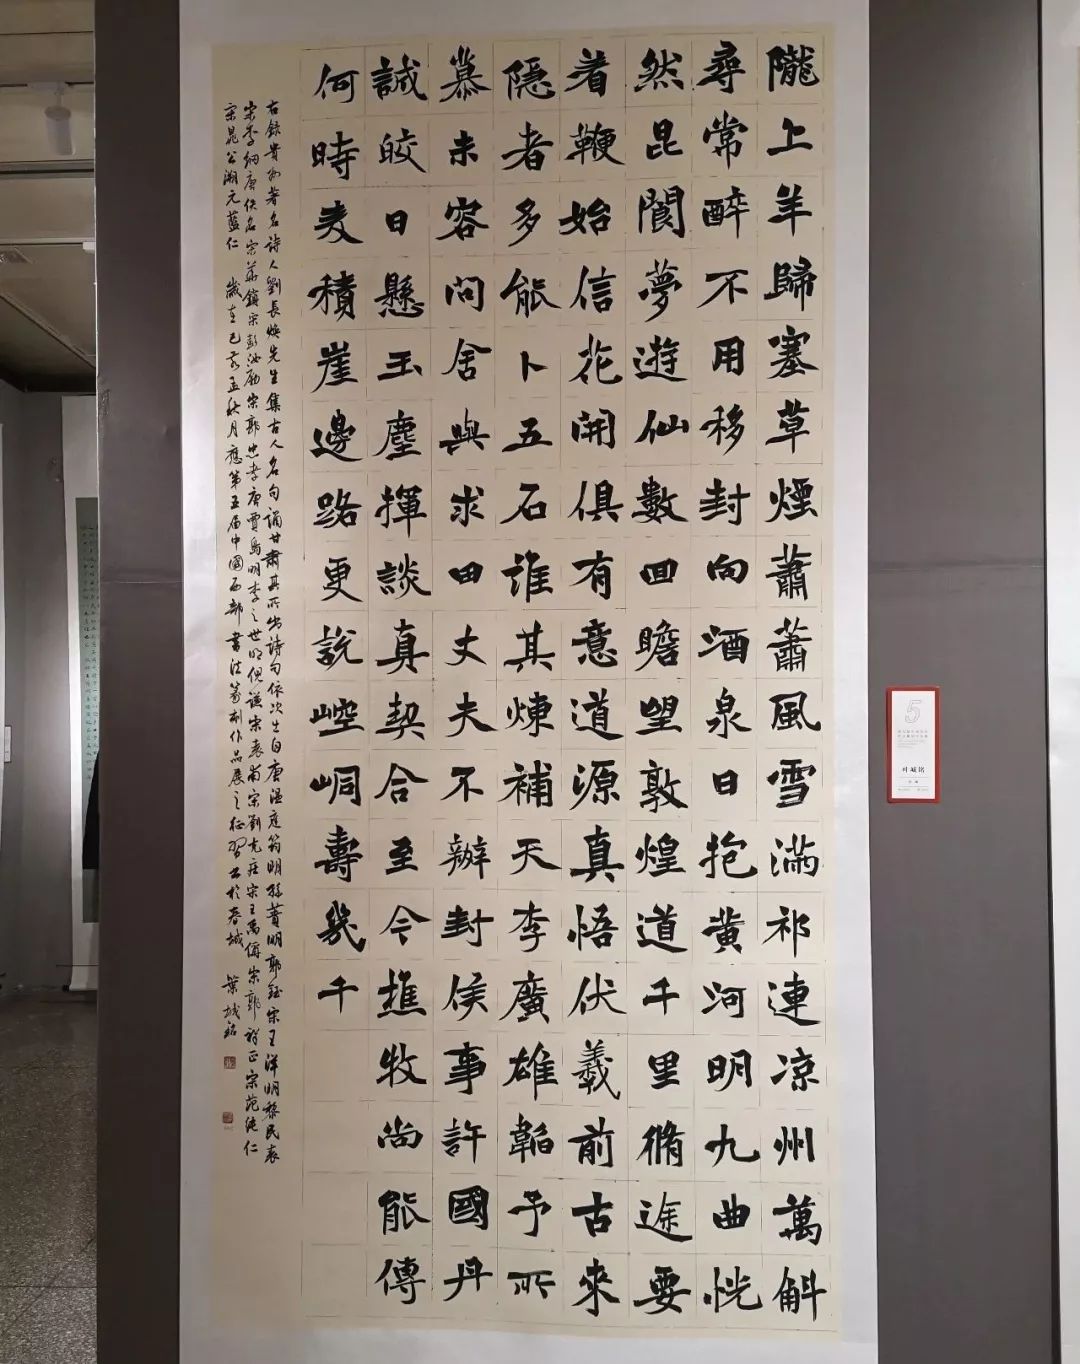 隴上羊歸塞草煙蕭蕭風雪滿祁連凉州萬斛
尋常醉不用移封向酒泉日抱黄河明九曲恍
然昆閬夢遊仙數回瞻望敦煌道千里脩途要
着鞭始信花開俱有意道源真悟伏羲前古來
隱者多能卜五石誰其煉補天李廣雄韜予所
慕未容問舍與求田丈夫不辦封侯事許國丹
誠皎日懸玉麈揮談真契合至今樵牧尚能傳
何時麦積崖邊路更説崆峒壽幾千
右錄貴州著名詩人劉長煥先生集古人名句誦甘肅其所出詩句依次生自唐温庭筠明孫蕡明郭鈺宋王洋明黎民表
宋李綱唐佚名宋華鎮宋彭汝礪宋郭忠孝唐賈島明李之世明倪謙宋袁甫宋劉克莊宋王禹偁宋郭祥正宋范純仁
宋晁公溯元藍仁 歲在己亥孟秋月應第五届中國西部書法篆刻作品展之征習书於春城 葉城銘
5
叶城铭